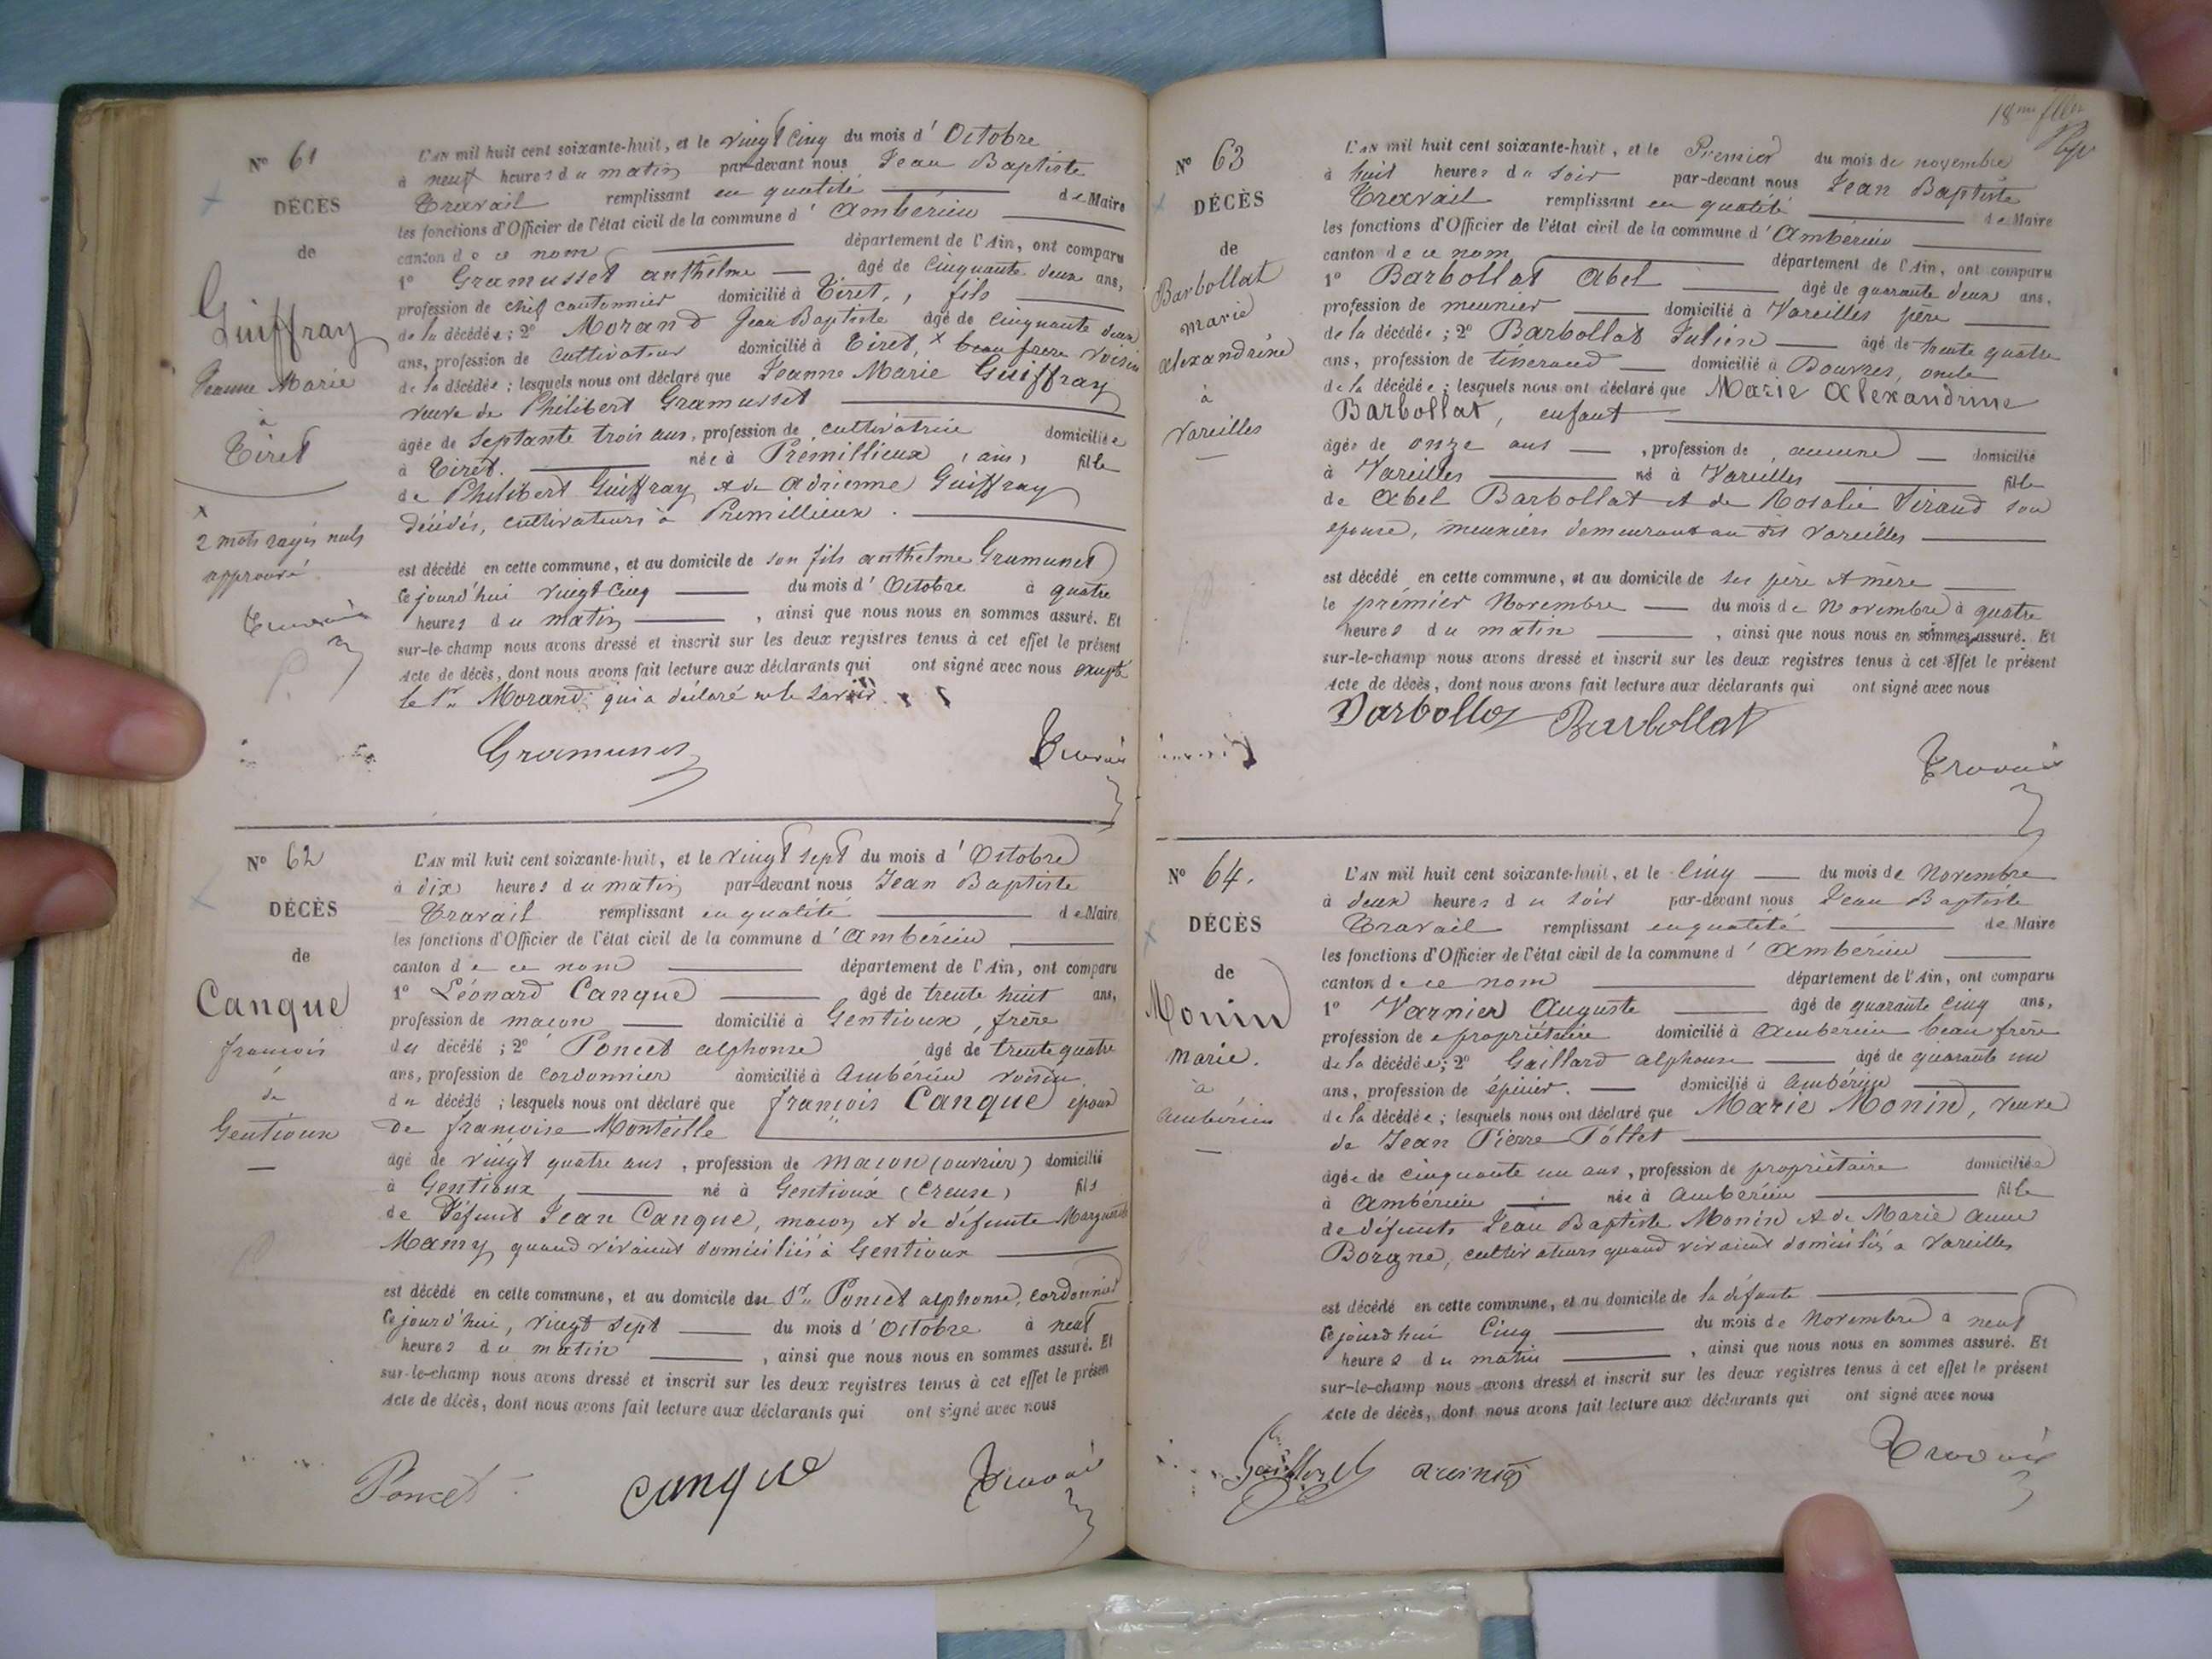 N° 61
DÉCÈS
de
Guiffray
Jeanne Marie
à
Tiret
x
2 mots rayés nuls
approuvé
L'AN mil huit cent soixante-huit, et le vingt cinq du mois d'Octobre
à neuf heures du matin par-devant nous Jean Baptiste
Travail remplissant en qualité de Maire
les fonctions d'Officier de l'état civil de la commune d'Ambérieu
canton de ce nom département de l'Ain, ont comparu
1° Gramusset anthelme âgé de cinquante deux ans,
profession de chef cantonnier domicilié à Tiret, fils
de la décédée ; 2° Morand Jean Baptiste âgé de cinquante deux
ans, profession de cultivateur domicilié à Tiret, x beau frère voisin
de la décédée ; lesquels nous ont déclaré que Jeanne Marie Guiffray
veuve de Philibert Gramusset
âgée de septante trois ans, profession de cultivatrice domiciliée
à Tiret. née à Prémillieux (ain) fille
de Philibert Guiffray et de Adrienne Guiffray
décédés, cultivateurs à Premillieux.
est décédé en cette commune, et au domicile de son fils anthelme Gramusset
Cejourd'hui vingt cinq du mois d'Octobre à quatre
heures du matin, ainsi que nous nous en sommes assuré. Et
sur-le-champ nous avons dressé et inscrit sur les deux registres tenus à cet effet le présent
Acte de décès, dont nous avons fait lecture aux déclarants qui ont signé avec nous excepté
le Sr Morand qui a déclaré ne le savoir.
Travail
N° 62
DÉCÈS
de
Canque
françois
de
Gentioux
L'AN mil huit cent soixante-huit, et le vingt sept du mois d'Octobre
à dix heures du matin par-devant nous Jean Baptiste
Travail remplissant en qualité de Maire
les fonctions d'Officier de l'état civil de la commune d'Ambérieu
canton de ce nom département de l'Ain, ont comparu
1° Léonard Canque âgé de trente huit ans,
profession de maçon domicilié à Gentioux, frère
du décédé ; 2° Poncet alphonse âgé de trente quatre
ans, profession de cordonnier domicilié à Ambérieu voisin
du décédé ; lesquels nous ont déclaré que françois Canque époux
de françoise Monteille
âgé de vingt quatre ans, profession de maçon (ouvrier) domicilié
à Gentioux né à Gentioux (Creuse) fils
de Défunt Jean Canque, maçon et de défunte Marguerite
Mamy quand vivaient domiciliés à Gentioux
est décédé en cette commune, et au domicile du Sr Poncet alphonse, cordonnier
Cejourd'hui, vingt sept du mois d'Octobre à neuf
heures du matin, ainsi que nous nous en sommes assuré. Et
sur-le-champ nous avons dressé et inscrit sur les deux registres tenus à cet effet le présen
Acte de décès, dont nous avons fait lecture aux déclarants qui ont signé avec nous
Poncet canque Travail
18me
N° 63
DÉCÈS
de
Barbollat
marie
alexandrine
à
Vareilles
L'AN mil huit cent soixante-huit, et le Premier du mois de novembre
à huit heures du soir par-devant nous Jean Baptiste
Travail remplissant en qualité de Maire
les fonctions d'Officier de l'état civil de la commune d'Ambérieu
canton de ce nom département de l'Ain, ont comparu
1° Barbollat Abel âgé de quarante deux ans,
profession de meunier domicilié à Vareilles père
de la décédée ; 2° Barbollat Julien âgé de trente quatre
ans, profession de tisserand domicilié à Douvres, oncle
de la décédée ; lesquels nous ont déclaré que Marie Alexandrine
Barbollat, enfant
âgée de onze ans, profession de aucune domicilié
à Vareilles né à Vareilles fille
de Abel Barbollat et de Rosalie Siraud son
épouse, meuniers demeurant au dit Vareilles
est décédé en cette commune, et au domicile de ses père et mère
le prémier Novembre du mois de Novembre à quatre
heures du matin, ainsi que nous nous en sommes assuré. Et
sur-le-champ nous avons dressé et inscrit sur les deux registres tenus à cet effet le présent
Acte de décès, dont nous avons fait lecture aux déclarants qui ont signé avec nous
Barbollat Travail
N° 64.
DÉCÈS
de
Monin
Marie.
à
Ambérieu
L'AN mil huit cent soixante-huit, et le Cinq du mois de Novembre
à deux heures du soir par-devant nous Jean Baptiste
Travail remplissant en qualité de Maire
les fonctions d'Officier de l'état civil de la commune d'Ambérieu
canton de ce nom département de l'Ain, ont comparu
1° Varnier Auguste âgé de quarante cinq ans,
profession de propriétaire domicilié à Ambérieu beau frère
de la décédée ; 2° Gaillard alphonse âgé de quarante un
ans, profession de épicier. domicilié à Ambérieu
de la décédée ; lesquels nous ont déclaré que Marie Monin, veuve
de Jean Pierre Tollet
âgée de cinquante un ans, profession de propriétaire domiciliée
à Ambérieu née à Ambérieu fille
de défunts Jean Baptiste Monin et de Marie Anne
Borgne, cultivateurs quand vivaient domiciliés à Vareilles
est décédé en cette commune, et au domicile de la défunte
Cejourd'hui Cinq du mois de Novembre à neuf
heures du matin, ainsi que nous nous en sommes assuré. Et
sur-le-champ nous avons dressé et inscrit sur les deux registres tenus à cet effet le présent
Acte de décès, dont nous avons fait lecture aux déclarants qui ont signé avec nous
Gaillard Travail